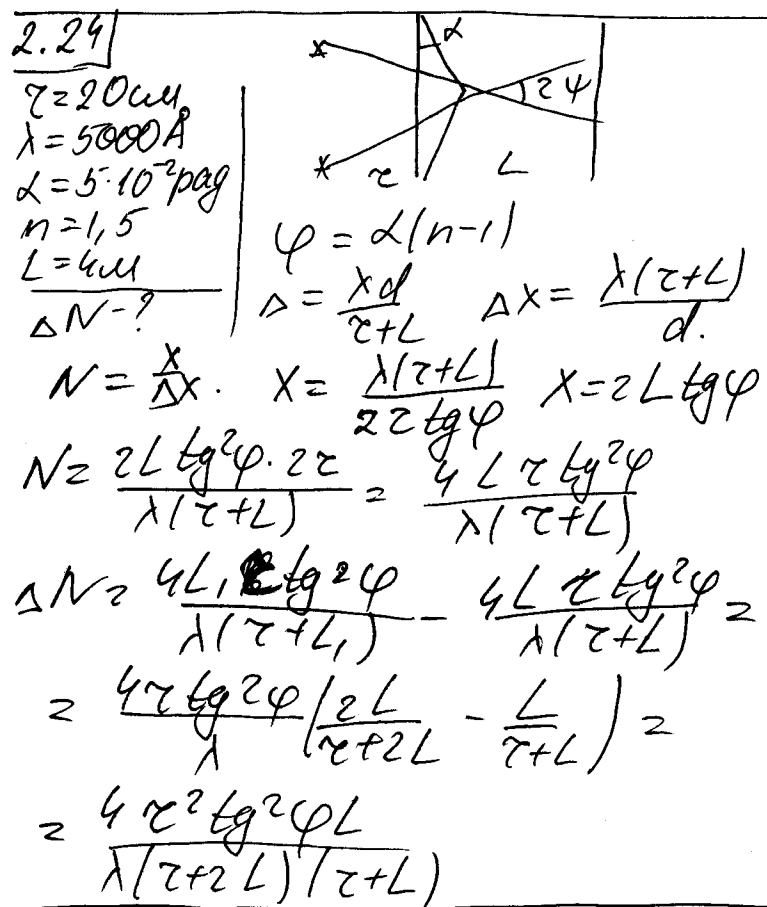 2.24
r = 20 см
λ = 5000 Å
α = 5·10⁻² рад
n = 1,5
L = 4 м
ΔN - ?
α
2φ
r L
φ = α(n-1)
Δ = xd/(r+L) Δx = λ(r+L)/d.
N = x/Δx. X = λ(r+L)/(2r tgφ) X = 2L tgφ
N = (2L tg²φ · 2r)/(λ(r+L)) = (4 L r tg²φ)/(λ(r+L))
ΔN = (4L₁ tg²φ)/(λ(r+L₁)) - (4L r tg²φ)/(λ(r+L)) =
= (4r tg²φ)/λ (2L/(r+2L) - L/(r+L)) =
= (4 r² tg²φ L)/(λ(r+2L)(r+L))